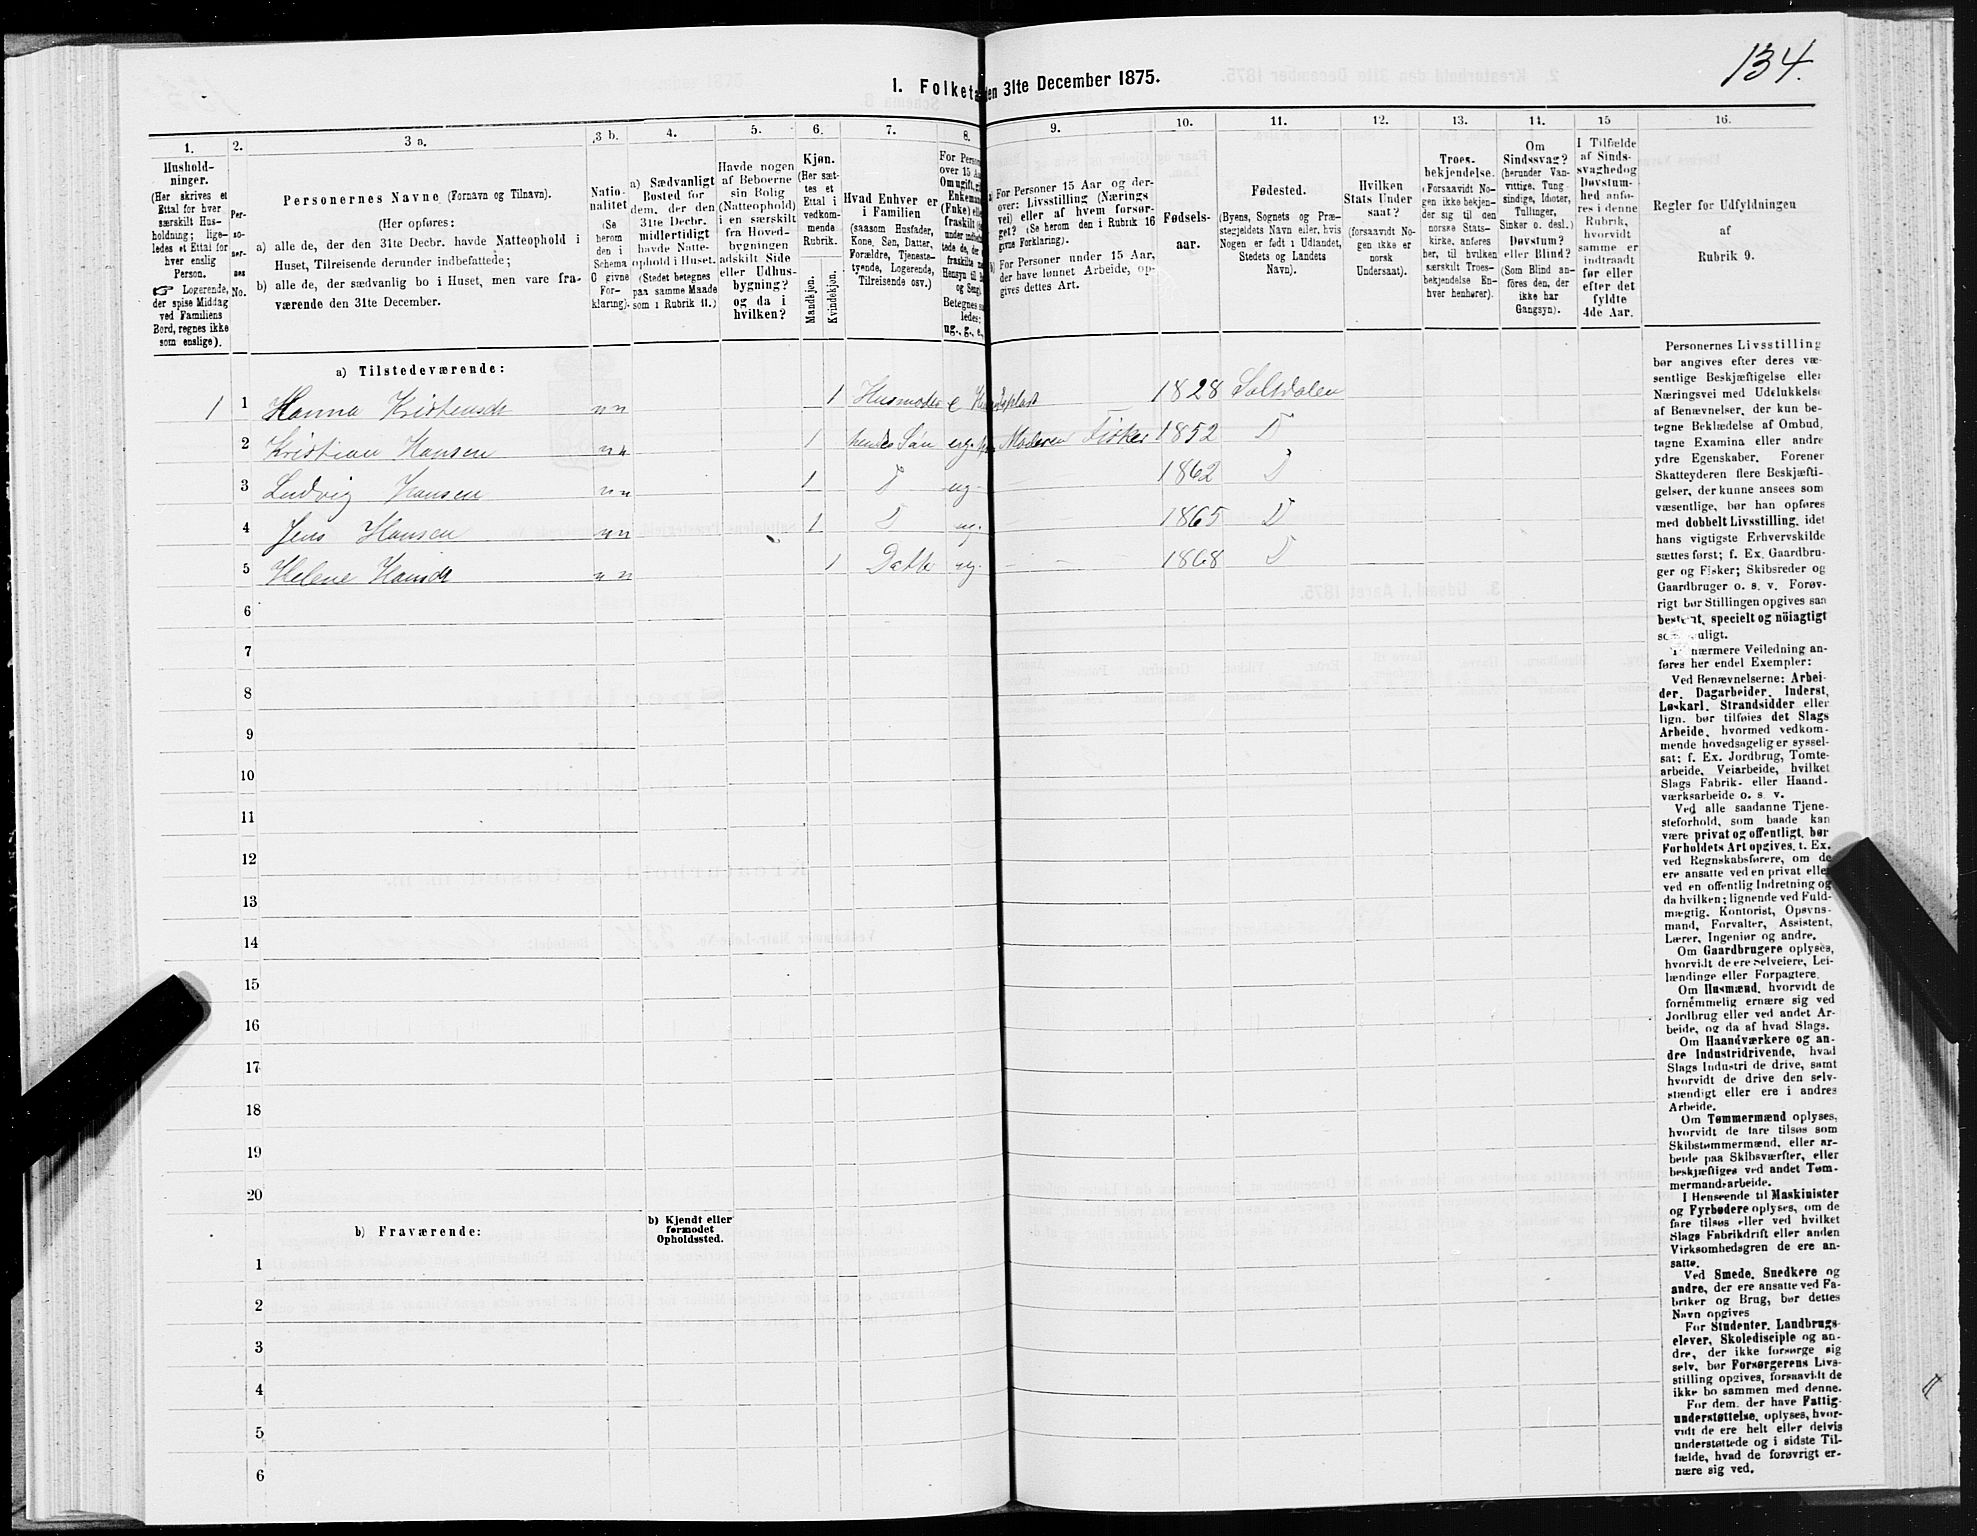 134.
1. Folketæ en 31te December 1875.
1. 2. 3 a. 3 b. 4. 5. 6. 7. 8. 9. 10. 11. 12. 13. 14. 15 16.
Hushold-
ninger.
(Her skrives et
Ettal for hver
særskilt Hus-
holdning; lige-
ledes et Ettal for
hver enslig
Person.
☞ Logerende,
der spise Middag
ved Familiens
Bord, regnes ikke
som enslige).
Per-
so-
ner-
nes
No.
Personernes Navne (Fornavn og Tilnavn).
(Her opføres:
a) alle de, der den 31te Decbr. havde Natteophold i
Huset, Tilreisende derunder indbefattede;
b) alle de, der sædvanlig bo i Huset, men vare fra-
værende den 31te December.
Natio-
nalitet
(Se
herom
den i
Schema
G givne
For-
klaring).
a) Sædvanligt
Bosted for
dem, der den
31te Decbr.
midlertidigt
havde Natte-
ophold i Huset.
(Stedet betegnes
paa samme Maade
som i Rubrik 11.)
Havde nogen
af Beboerne
sin Bolig
(Natteophold)
i en særskilt
fra Hoved-
bygningen
adskilt Side
eller Udhus-
bygning?
og da i
hvilken?
Kjøn.
(Her sæt-
tes et
Ettal i
vedkom-
mende
Rubrik.
Mandkjøn.
Kvindekjøn.
Hvad Enhver er
i Familien
(saasom Husfader,
Kone, Søn, Datter,
Forældre, Tjeneste-
tyende, Logerende,
Tilreisende osv.)
For Person
over 15 Aa
Om ugift, gif
Enkeman
(Enke) elle
fraskilt
Betegnes s
ledes:
ug., g., e.,
a) For Personer 15 Aar og der-
over: Livsstilling (Nærings
vei) eller af hvem forsør-
get? (Se herom den i Rubrik 16
givne Forklaring).
b) For Personer under 15 Aar,
der have lønnet Arbeide, op-
gives dettes Art.
Fødsels-
aar.
Fødested.
(Byens, Sognets og Præ-
stegjeldets Navn eller, hvis
Nogen er født i Udlandet,
Stedets og Landets
Navn).
Hvilken
Stats Under
saat?
(forsaavidt No-
gen ikke er
norsk
Undersaat).
Troes-
bekjendelse.
(Forsaavidt No-
gen ikke bekjen-
der sig til den
norske Stats-
kirke, anføres
her, til hvilken
særskilt Troes-
bekjendelse En-
hver henhører).
Om
Sindssvag?
(herunder Van-
vittige, Tung
sindige, Idioter,
Tullinger,
Sinker o. desl.)
Døvstum?
eller Blind?
(Som Blind an-
føres den, der
ikke har
Gangsyn).
I Tilfælde
af Sinds-
svaghed og
Døvstum-
hed anfø-
res i denne
Rubrik,
hvorvidt
samme er
indtraadt
før eller
efter det
fyldte
4de Aar.
Regler for Udfyldningen
af
Rubrik 9.
a) Tilstedeværende:
1 1 Hanna Kristensdr nn 1 Husmoder e Husplads 1828 Saltdalen
2 Kristian Hansen nn 1 hendes Søn ug. Moderen Fisker 1852 D
3 Ludvig Hansen nn 1 D ug. 1862 D
4 Jens Hansen nn 1 D ug. 1865 D
5 Helene Hansdr nn 1 Datter ug. 1868 D
6
7
8
9
10
11
12
13
14
15
16
17
18
19
20
b) Fraværende:
b) Kjendt eller
formodet
Opholdssted.
1
2
3
4
5
6
Personernes Livsstilling
bør angives efter deres væ-
sentlige Beskjæftigelse eller
Næringsvei med Udelukkelse
af Benævnelser, der kun be-
tegne Beklædelse af Ombud,
tagne Examina eller andre
ydre Egenskaber. Forener
Skatteyderen flere Beskjæfti-
gelser, der kunne ansees som
væsentlige, bør han opføres
med dobbelt Livsstilling, idet
hans vigtigste Erhvervskilde
sættes først; f. Ex. Gaardbru-
ger og Fisker; Skibsreder og
Gaardbruger o. s. v. Forøv-
rigt bør Stillingen opgives saa
bestemt, specielt og nöiagtigt
som muligt.
Til nærmere Veiledning an-
føres her endel Exempler:
Ved Benævnelserne: Arbei-
der, Dagarbeider, Inderst,
Løskarl, Strandsidder eller
lign. bør tilføies det Slags
Arbeide, hvormed vedkom-
mende hovedsagelig er syssel-
sat; f. Ex. Jordbrug, Tomte-
arbeide, Veiarbeide, hvilket
Slags Fabrik- eller Haand-
værksarbeide o. s. v.
Ved alle saadanne Tjene-
steforhold, som baade kan
være privat og offentligt, bør
Forholdets Art opgives, t. Ex.
ved Regnskabsførere, om de
ere ansatte ved en privat eller
ved en offentlig Indretning og
da hvilken; lignende ved Fuld-
mægtig, Kontorist, Opsyns-
mand, Forvalter, Assistent,
Lærer, Ingeniør og andre.
Om Gaardbrugere oplyses,
hvorvidt de ere Selveiere, Lei-
lændinge eller Forpagtere.
Om Husmænd, hvorvidt de
fornemmelig ernære sig ved
Jordbrug eller ved andet Ar-
beide, og da af hvad Slags.
Om Haandværkere og an-
dre Industridrivende, hvad
Slags Industri de drive, samt
hvorvidt de drive den selv-
stændigt eller ere i andres
Arbeide.
Om Tømmermænd oplyses,
hvorvidt de fare tilsøs som
Skibstømmermænd, eller ar-
beide paa Skibsværfter, eller
beskjæftiges ved andet Tøm-
mermandsarbeide.
I Henseende til Maskinister
og Fyrbødere oplyses, om de
fare tilsøs eller ved hvilket
Slags Fabrikdrift eller anden
Virksomhedsgren de ere an-
satte.
Ved Smede, Snedkere og
andre, der ere ansatte ved Fa-
briker og Brug, bør dettes
Navn opgives
For Studenter, Landbrugs-
elever, Skoledisciple og an-
dre, der ikke forsørge sig
selv, bør Forsørgerens Livs-
stilling opgives, forsaavidt de
ikke bo sammen med denne.
For dem, der have Fattig-
understøttelse, oplyses, hvor-
vidt de ere helt eller delvis
understøttede og i sidste Til-
fælde, hvad de forøvrigt er-
nære sig ved.